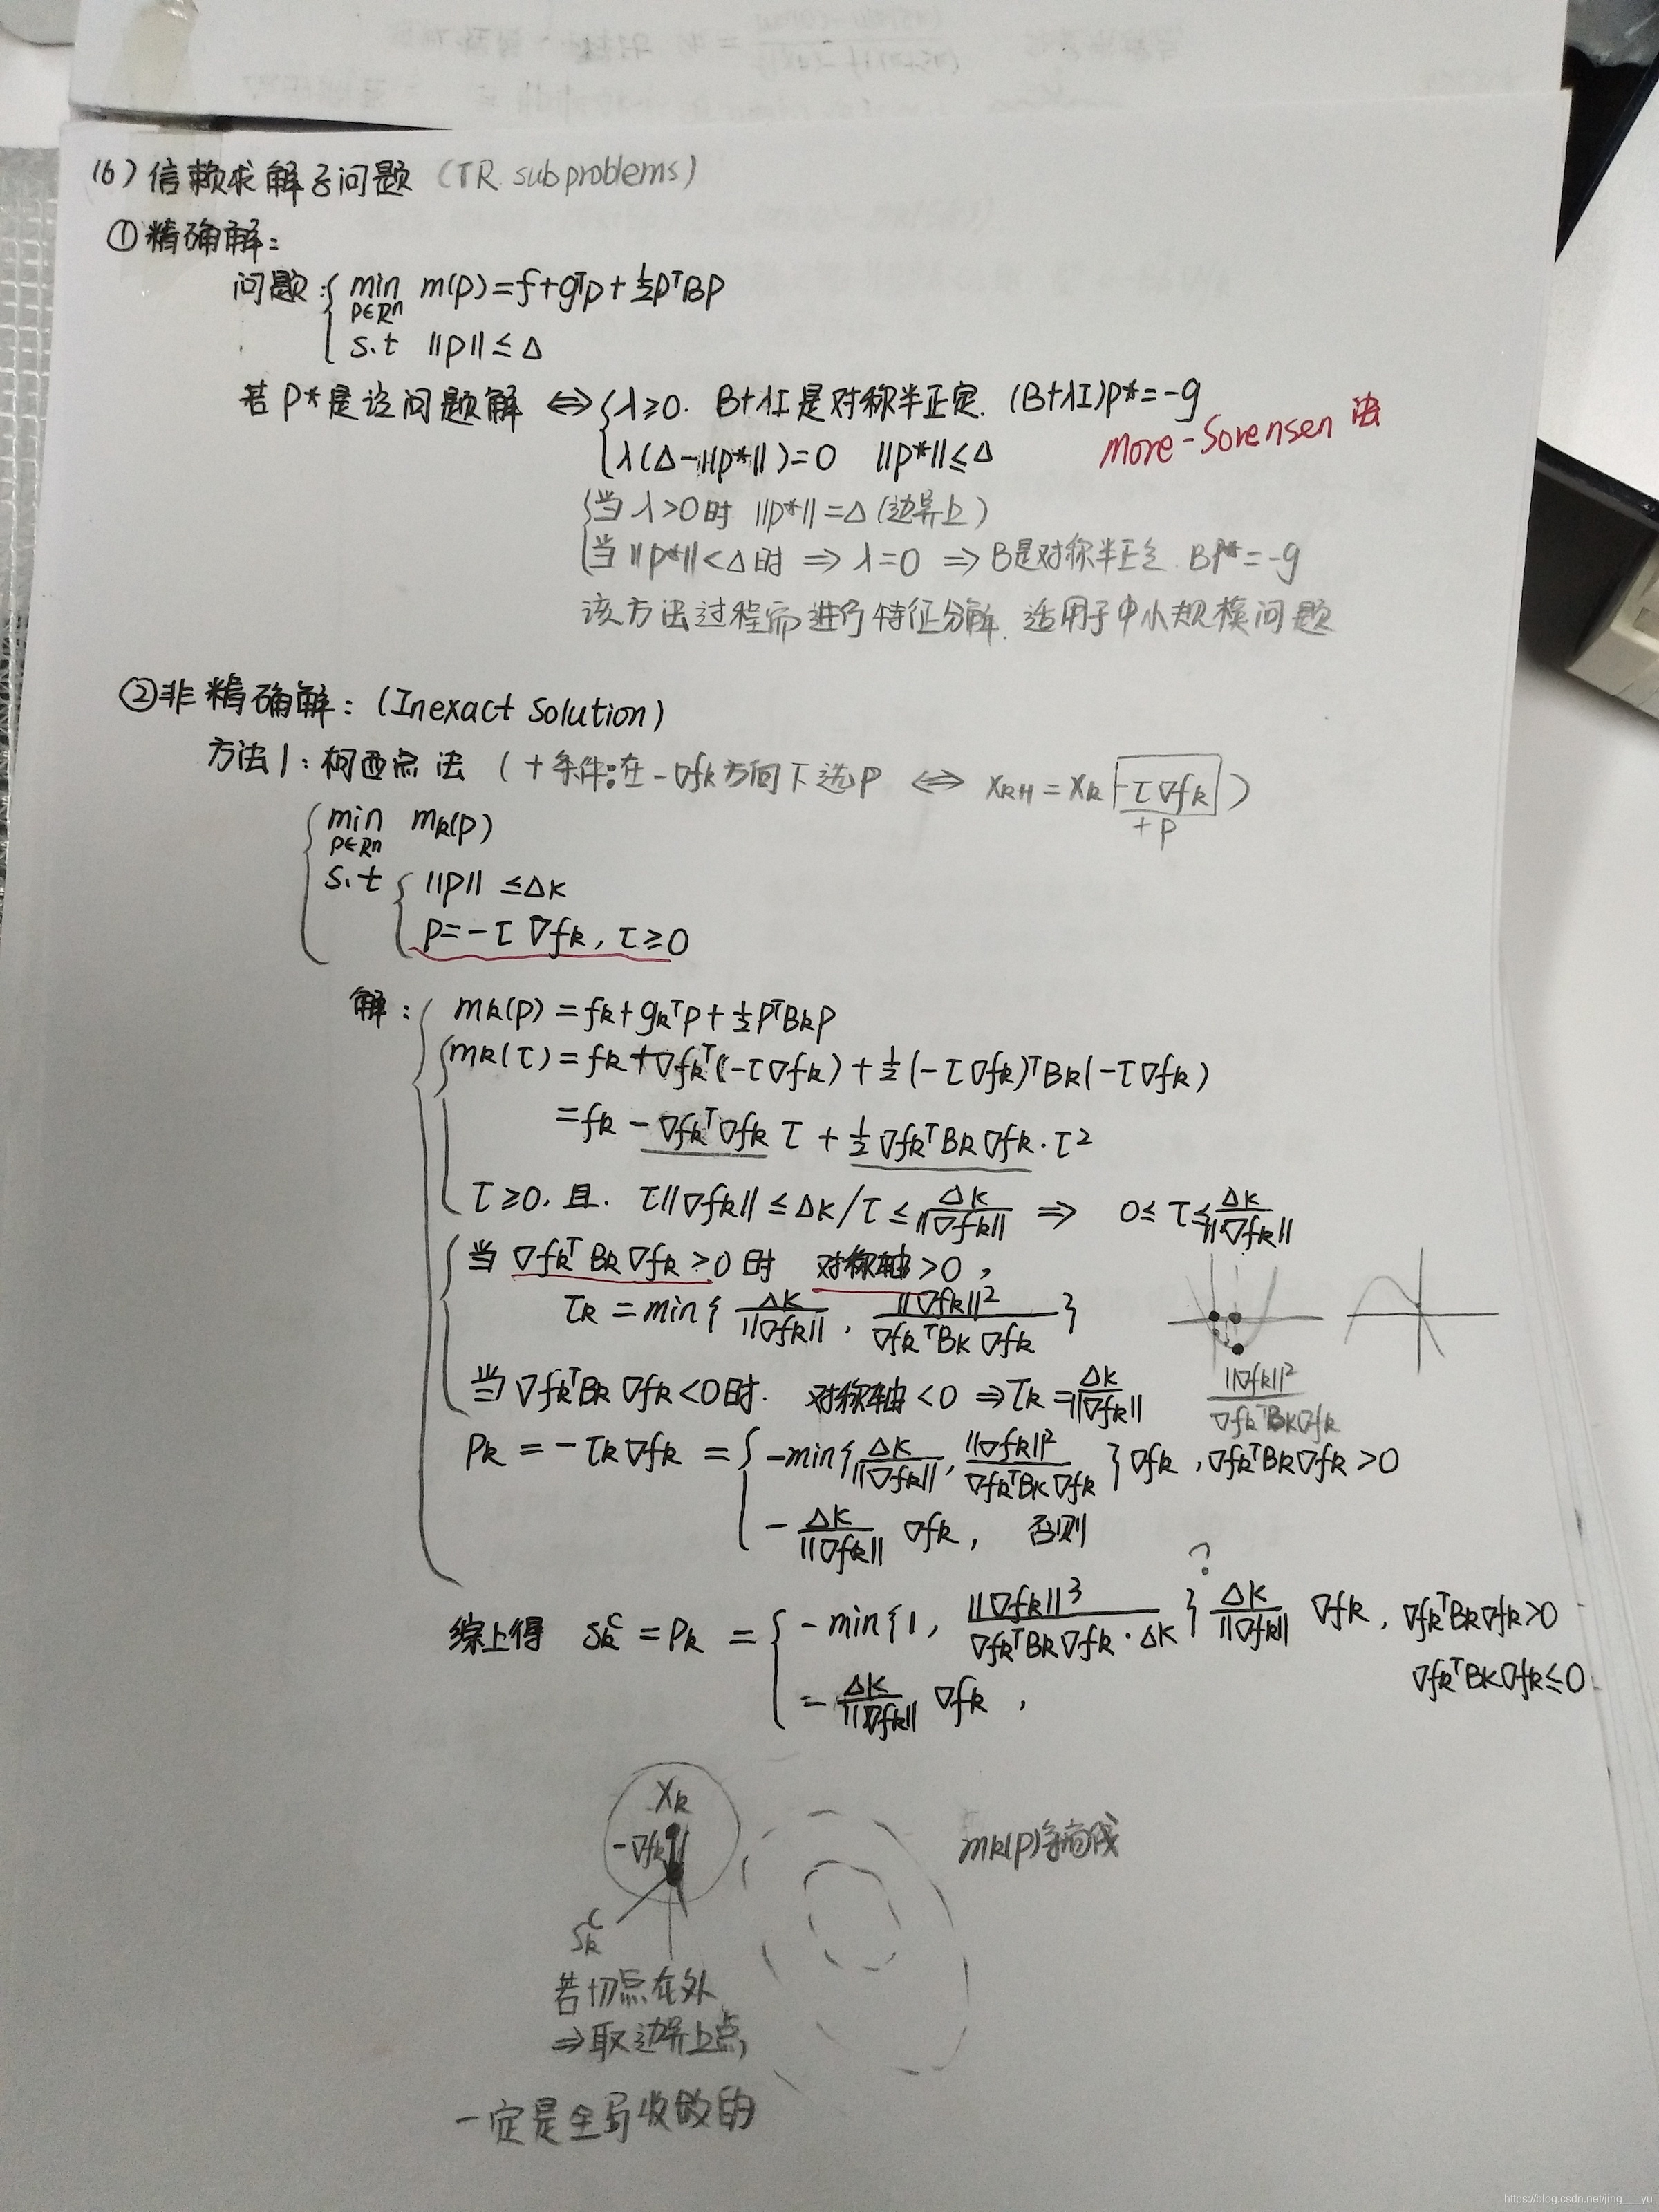 (6) 信赖求解子问题 (TR subproblems)
① 精确解:
问题: { min m(p)=f+gᵀp+½pᵀBp
p∈Rⁿ
s.t ||p||≤Δ
若 p*是该问题解 ⇔ { λ≥0. B+λI是对称半正定. (B+λI)p*=-g
λ(Δ-||p*||)=0 ||p*||≤Δ
More-Sorensen 法
{ 当 λ>0时 ||p*||=Δ (边界上)
当 ||p*||<Δ时 ⇒ λ=0 ⇒ B是对称半正定. Bp*=-g
该方法过程需进行特征分解. 适用于中小规模问题
② 非精确解: (Inexact Solution)
方法1: 柯西点法 (+条件:在-∇fk方向下选p ⇔ xk+1=xk -τ∇fk)
+p
{ min mk(p)
p∈Rⁿ
s.t { ||p|| ≤Δk
p=-τ∇fk, τ≥0
解: { mk(p)=fk+gkᵀp+½pᵀBkp
mk(τ)=fk+∇fkᵀ(-τ∇fk)+½(-τ∇fk)ᵀBk(-τ∇fk)
=fk-∇fkᵀ∇fk τ+½∇fkᵀBk∇fk·τ²
τ≥0, 且. τ||∇fk||≤Δk/τ≤Δk/||∇fk|| ⇒ 0≤τ≤Δk/||∇fk||
{ 当∇fkᵀBk∇fk>0时 对称轴>0,
τk=min{Δk/||∇fk||, ||∇fk||²/∇fkᵀBk∇fk}
当∇fkᵀBk∇fk<0时. 对称轴<0 ⇒τk=Δk/||∇fk||
||∇fk||²/∇fkᵀBk∇fk
Pk=-τk∇fk={ -min{Δk/||∇fk||, ||∇fk||²/∇fkᵀBk∇fk}∇fk, ∇fkᵀBk∇fk>0
-Δk/||∇fk|| ∇fk, 否则
?
综上得 Skᶜ=Pk={ -min{1, ||∇fk||³/∇fkᵀBk∇fk·Δk} Δk/||∇fk|| ∇fk, ∇fkᵀBk∇fk>0
-Δk/||∇fk|| ∇fk, ∇fkᵀBk∇fk≤0
Xk
-∇fk
mk(p)等高线
Skᶜ
若切点在外
⇒取边界上点,
一定是全局收敛的
https://blog.csdn.net/jing___yu